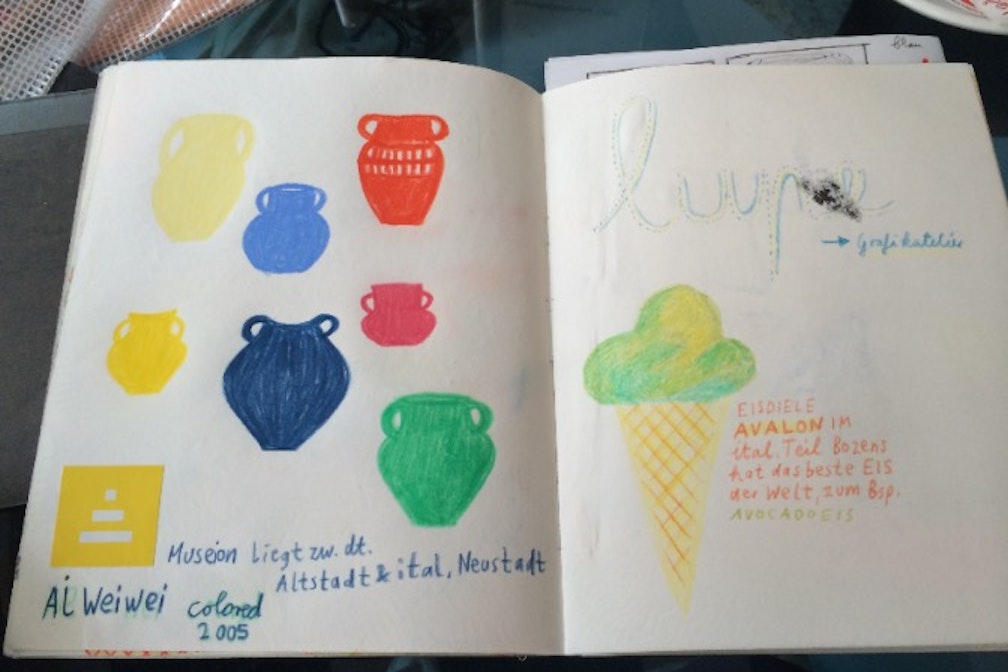 Museion liegt zw. dt.
Altstadt & ital. Neustadt
Ai Weiwei
colored
2005
blau
luupe
→ Grafikatelier
EISDIELE
AVALON IM
ital. Teil Bozens
hat das beste EIS
der Welt, zum Bsp.
AVOCADOEIS